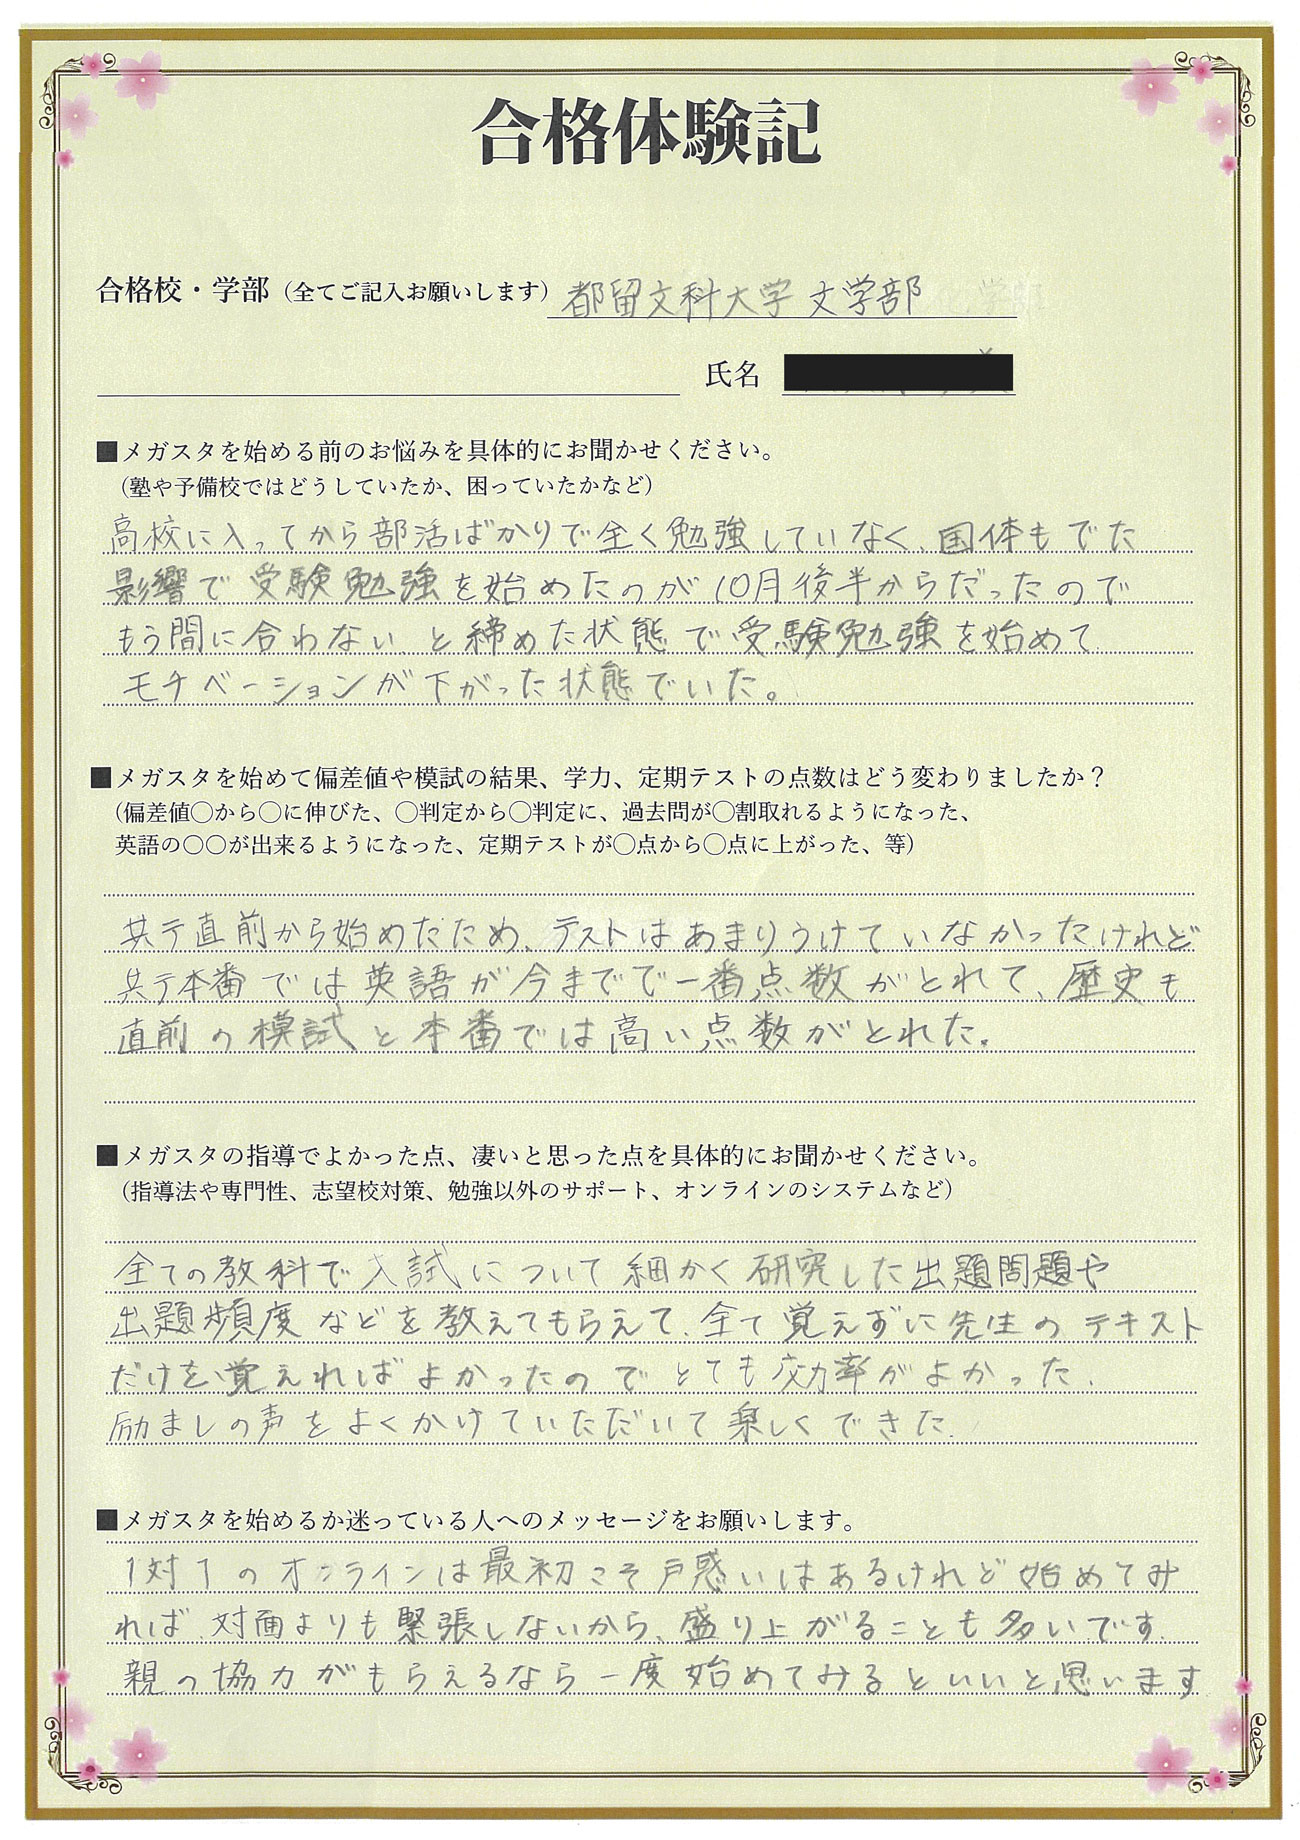 合格体験記
合格校・学部（全てご記入お願いします）都留文科大学 文学部
氏名
■メガスタを始める前のお悩みを具体的にお聞かせください。
（塾や予備校ではどうしていたか、困っていたかなど）
高校に入ってから部活ばかりで全く勉強していなく、国体もでた
影響で受験勉強を始めたのが10月後半からだったので
もう間に合わない と締めた状態で受験勉強を始めて
モチベーションが下がった状態でいた。
■メガスタを始めて偏差値や模試の結果、学力、定期テストの点数はどう変わりましたか？
（偏差値〇から〇に伸びた、〇判定から〇判定に、過去問が〇割取れるようになった、
英語の〇〇が出来るようになった、定期テストが〇点から〇点に上がった、等）
共テ直前から始めたため、テストはあまりうけていなかったけれど
共テ本番では英語が今までで一番点数がとれて、歴史も
直前の模試と本番では高い点数がとれた。
■メガスタの指導でよかった点、凄いと思った点を具体的にお聞かせください。
（指導法や専門性、志望校対策、勉強以外のサポート、オンラインのシステムなど）
全ての教科で入試について細かく研究した出題問題や
出題頻度などを教えてもらえて、全て覚えずに先生のテキスト
だけを覚えればよかったのでとても効率がよかった、
励ましの声をよくかけていただいて楽しくできた.
■メガスタを始めるか迷っている人へのメッセージをお願いします。
1対1のオンラインは最初こそ戸惑いはあるけれど始めてみ
れば、対面よりも緊張しないから、盛り上がることも多いです.
親の協力がもらえるなら一度始めてみるといいと思います